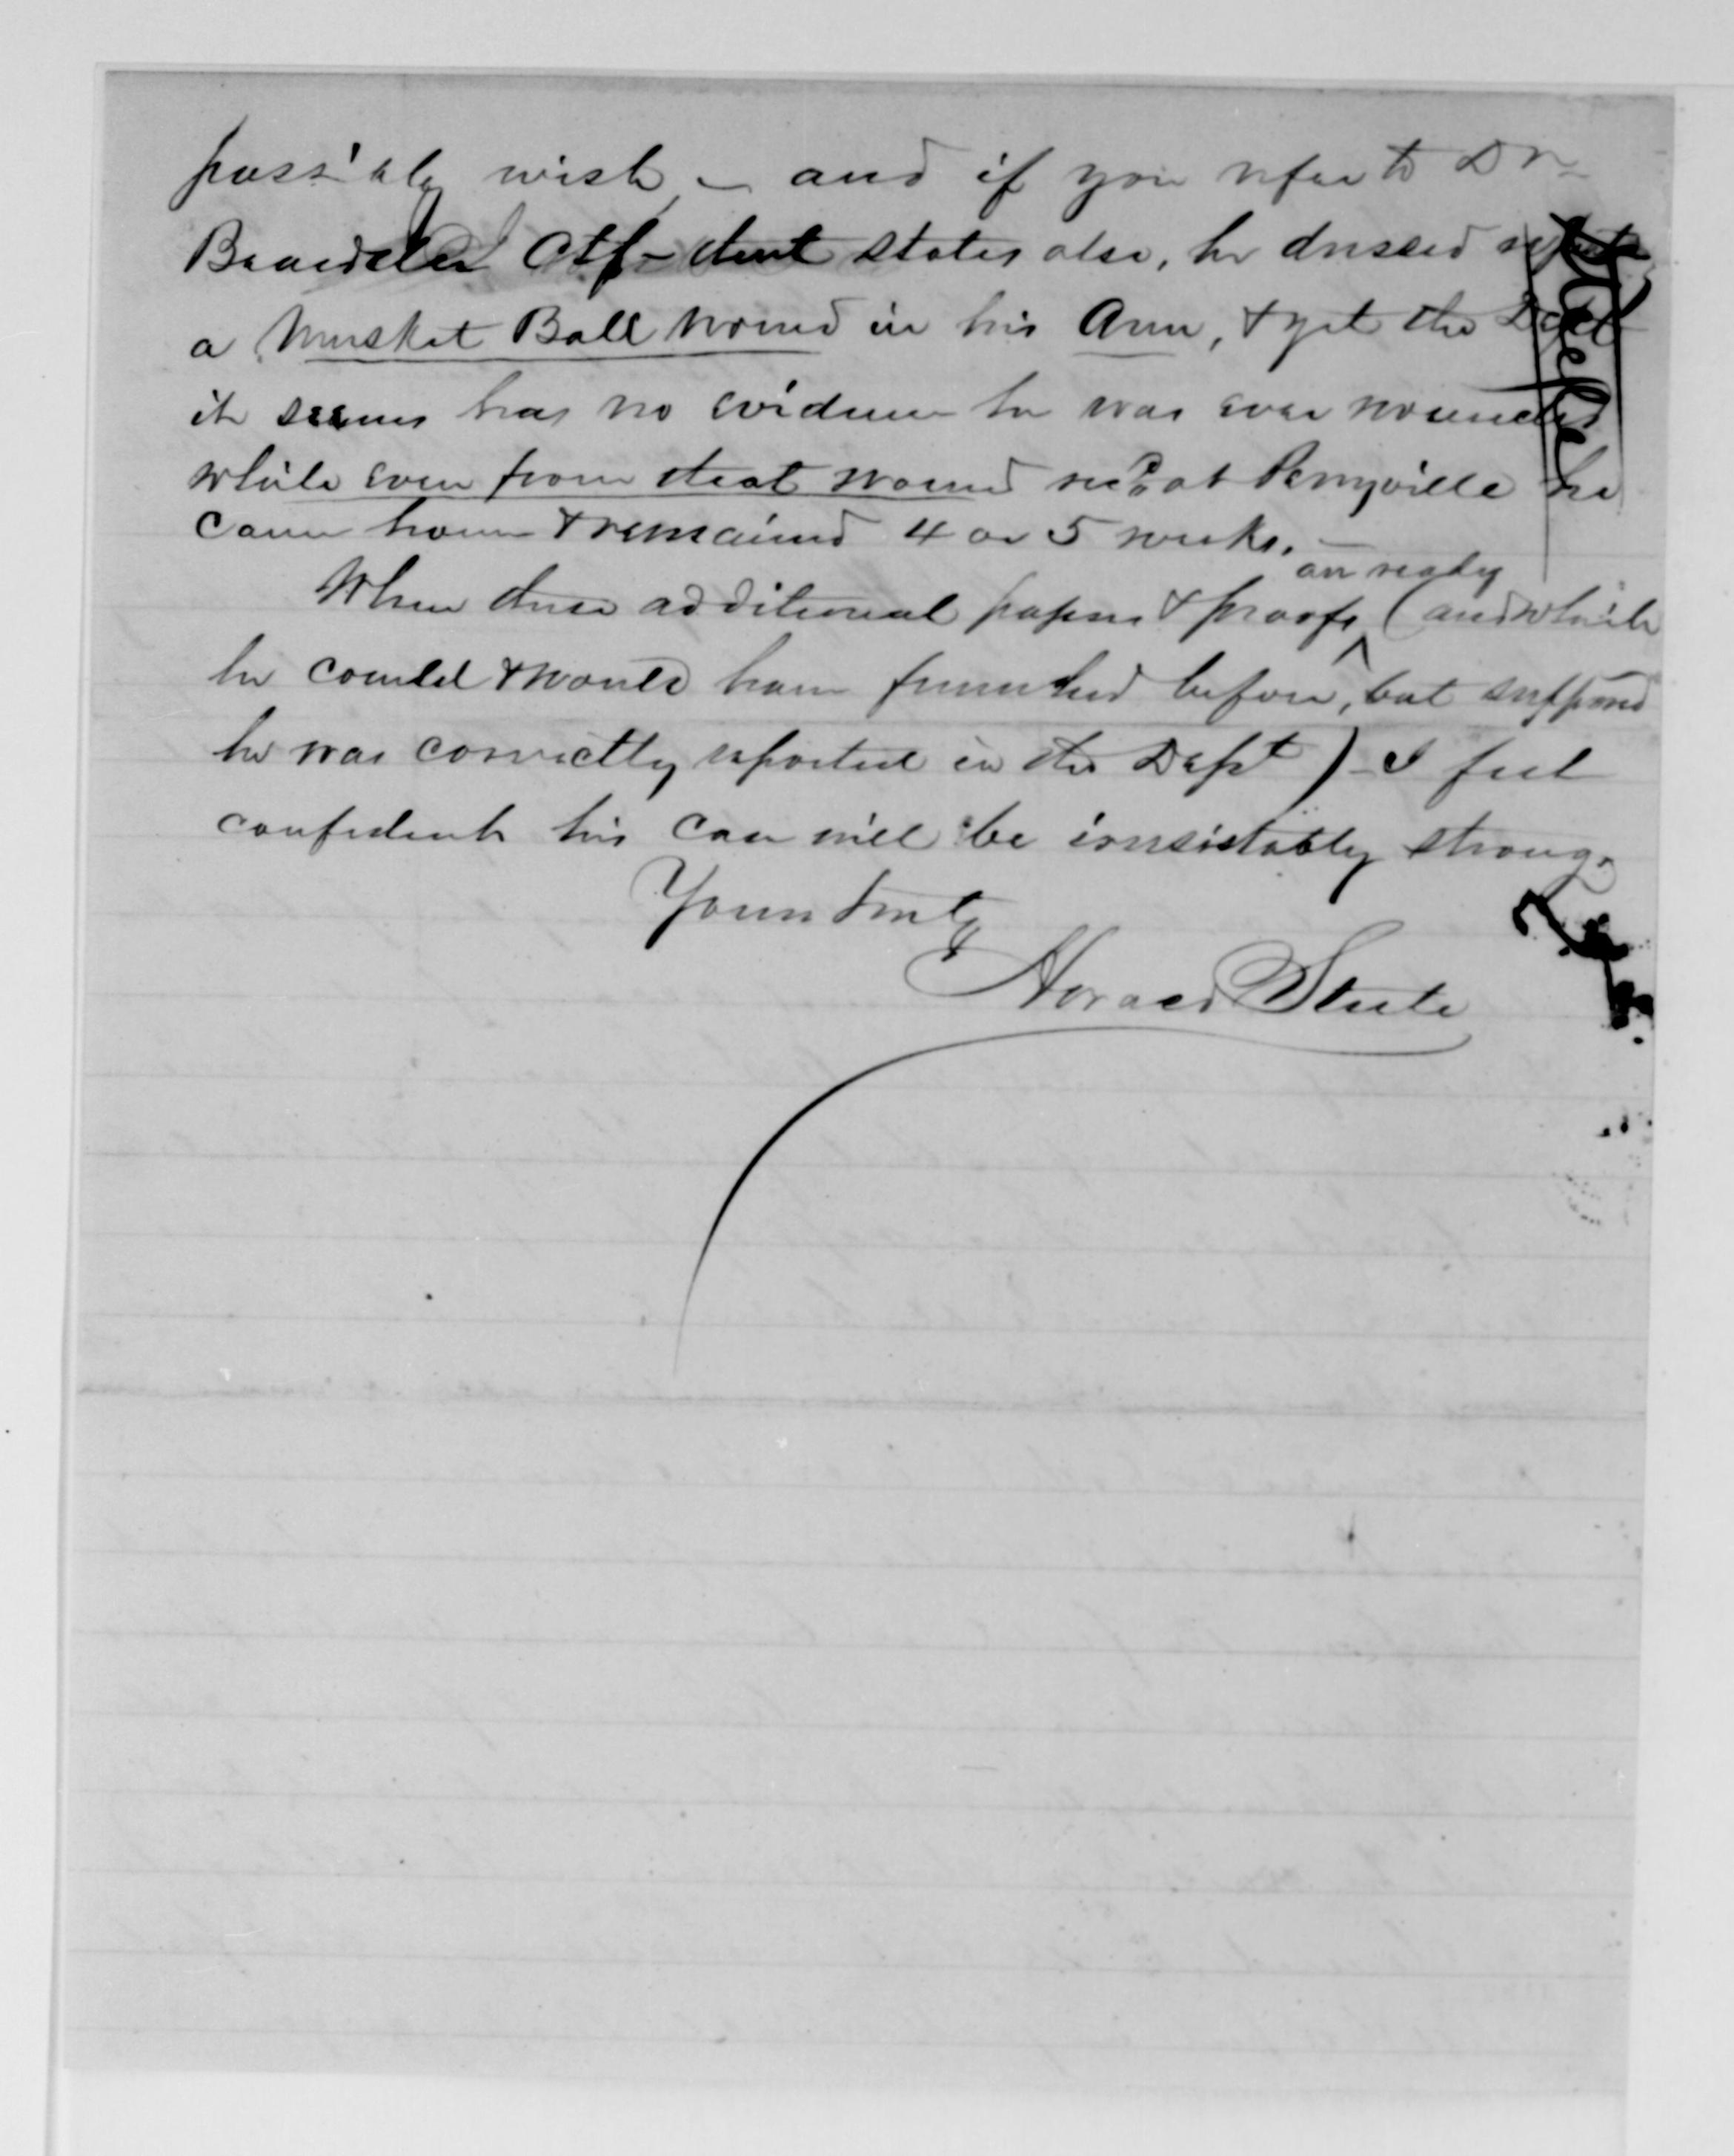 possibly wish, - and if you refer to Dr
Beardslee Ctf - that states also, he dressed
a Musket Ball wound in his Arm, & yet the Dept
it seems has no evidence he was ever wounded
while even from that wound recd at Perryville he
came home & remained 4 or 5 weeks. -
are ready
When these additional papers & proofs (and which
he could & would have furnished before, but supposed
he was correctly reported in the Dept) - I feel
confident his case will be irresistably strong.
Yours truly
Horace Steele